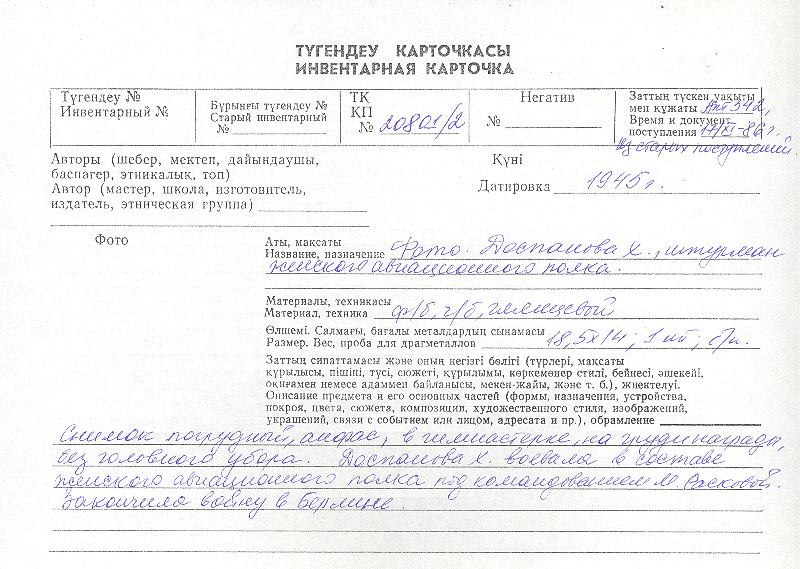 ТҮГЕНДЕУ КАРТОЧКАСЫ
ИНВЕНТАРНАЯ КАРТОЧКА
Түгендеу №
Инвентарный №
Бұрынғы түгендеу №
Старый инвентарный
№
ТК
ҚП
№ 20801/2
Негатив
№
Заттың түскен уақыты
мен құжаты Акт 342,
Время и документ
поступления 17/XI-86 г.
Из старых поступлений.
Авторы (шебер, мектеп, дайындаушы,
баспагер, этникалық, топ)
Автор (мастер, школа, изготовитель,
издатель, этническая группа)
Күні
Датировка 1945 г.
Фото
Аты, мақсаты
Название, назначение Фото. Доспанова Х., штурман
женского авиационного полка.
Материалы, техникасы
Материал, техника ф/б, ч/б, глянцевой
Өлшемі. Салмағы, бағалы металдардың сынамасы
Размер. Вес, проба для драгметаллов 18,5х14; 1 шт;
Заттың сипаттамасы және оның негізгі бөлігі (түрлері, мақсаты
құрылысы, пішіні, түсі, сюжеті, құрылымы, көркемөнер стилі, бейнесі, әшекейі,
оқиғамен немесе адаммен байланысы, мекен-жайы, және т. б.), жиектелуі.
Описание предмета и его основных частей (формы, назначения, устройства,
покроя, цвета, сюжета, композиция, художественного стиля, изображений,
украшений, связи с событием или лицом, адресата и пр.), обрамление
Снимок погрудный, анфас, в гимнастерке, на груди награды,
без головного убора. Доспанова Х. воевала в составе
женского авиационного полка под командованием М. Расковой.
Закончила войну в Берлине.